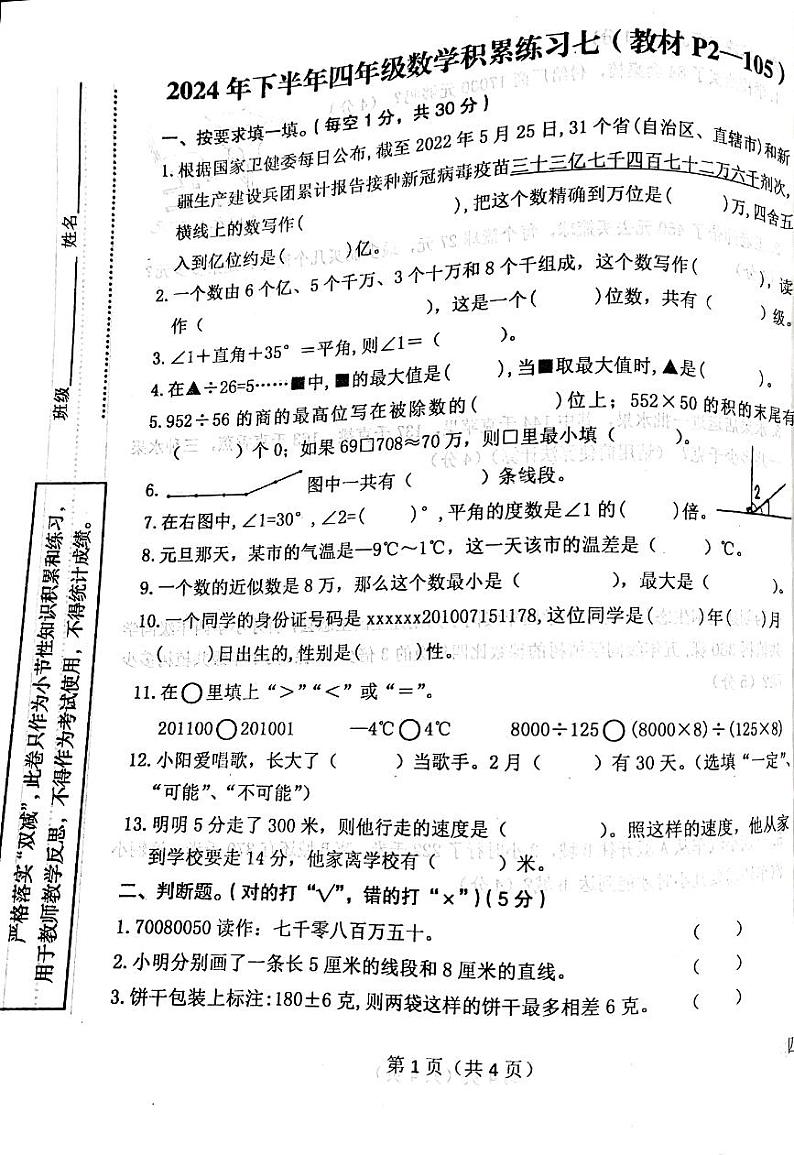 2024年下半年四年级数学积累练习七（教材P2—105）
一、按要求填一填。（每空1分，共30分）
1.根据国家卫健委每日公布,截至2022年5月25日,31个省(自治区、直辖市)和新
疆生产建设兵团累计报告接种新冠病毒疫苗三十三亿七千四百七十二万六千剂次,
横线上的数写作(    ),把这个数精确到万位是(    )万,四舍五
入到亿位约是(    )亿。
2.一个数由6个亿、5个千万、3个十万和8个千组成，这个数写作(    ),读
作(    )，这是一个(    )位数，共有(    )级。
3.∠1+直角+35°=平角,则∠1=(    )。
4.在▲÷26=5……■中,■的最大值是(    ),当■取最大值时,▲是(    )。
5.952÷56的商的最高位写在被除数的(    )位上；552×50的积的末尾有
(    )个0；如果69□708≈70万，则□里最小填(    )。
6. 图中一共有(    )条线段。
7.在右图中,∠1=30°,∠2=(    )°,平角的度数是∠1的(    )倍。
2
8.元旦那天，某市的气温是—9℃～1℃，这一天该市的温差是(    )℃。
9.一个数的近似数是8万，那么这个数最小是(    )，最大是(    )。
10.一个同学的身份证号码是xxxxxx201007151178,这位同学是(    )年(    )月
(    )日出生的,性别是(    )性。
11.在○里填上“>”“<”或“=”。
201100○201001    —4℃○4℃    8000÷125○(8000×8)÷(125×8)
12.小阳爱唱歌，长大了(    )当歌手。2月(    )有30天。(选填“一定”、
“可能”、“不可能”)
13.明明5分走了300米，则他行走的速度是(    )。照这样的速度，他从家
到学校要走14分，他家离学校有(    )米。
二、判断题。（对的打“√”，错的打“×”）(5分)
1.70080050读作：七千零八百万五十。 (    )
2.小明分别画了一条长5厘米的线段和8厘米的直线。 (    )
3.饼干包装上标注:180±6克,则两袋这样的饼干最多相差6克。 (    )
第1页（共4页）
班级 姓名
严格落实“双减”,此卷只作为小节性知识积累和练习,
用于教师教学反思，不得作为考试使用，不得统计成绩。